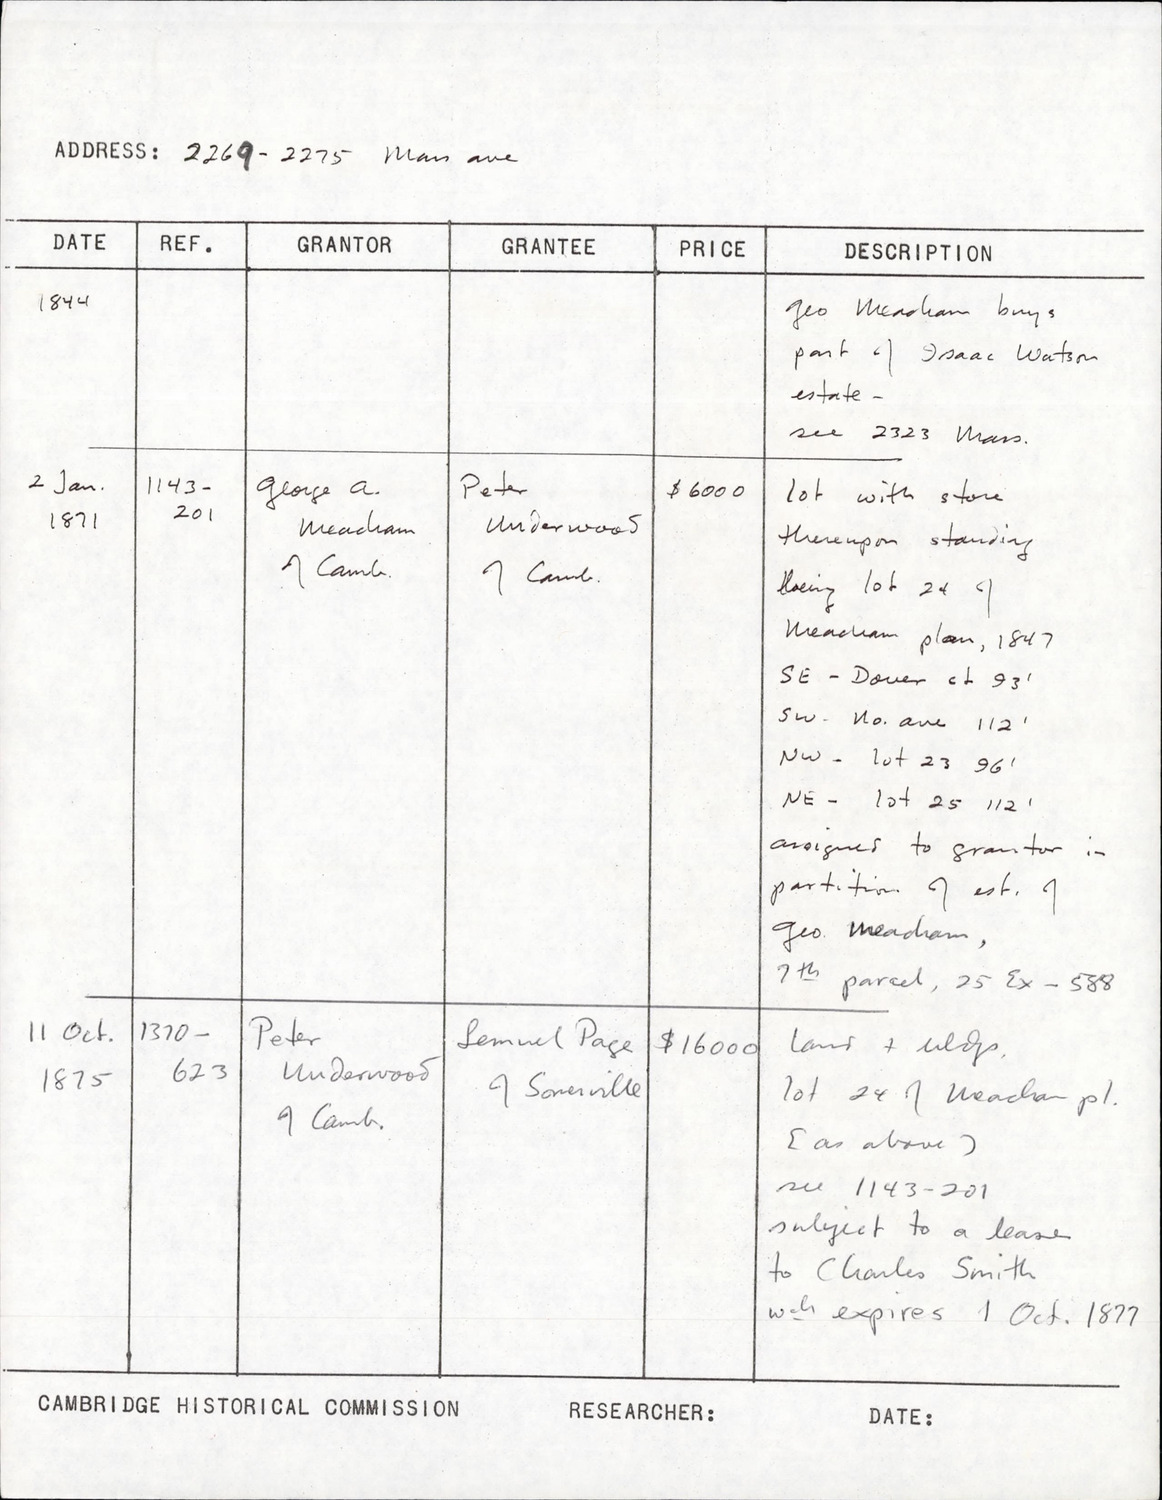 ADDRESS: 2269-2275 Mass ave
DATE REF. GRANTOR GRANTEE PRICE DESCRIPTION
1844
geo Meacham buys
part of Isaac Watson
estate -
see 2323 Mass.
2 Jan.
1871
1143-
201
George A.
Meacham
of Camb.
Peter
Underwood
of Camb.
$6000
lot with store
thereupon standing
being lot 24 of
Meacham plan, 1847
SE - Dover st 93'
SW - No. ave 112'
NW - lot 23 96'
NE - lot 25 112'
assigned to grantor in
partition of est. of
Geo. Meacham,
7th parcel, 25 Ex - 588
11 Oct.
1875
1370-
623
Peter
Underwood
of Camb.
Lemuel Page
of Somerville
$16000
land + bldgs,
lot 24 of Meacham pl.
[as above]
see 1143-201
subject to a lease
to Charles Smith
wch expires 1 Oct. 1877
CAMBRIDGE HISTORICAL COMMISSION RESEARCHER: DATE: